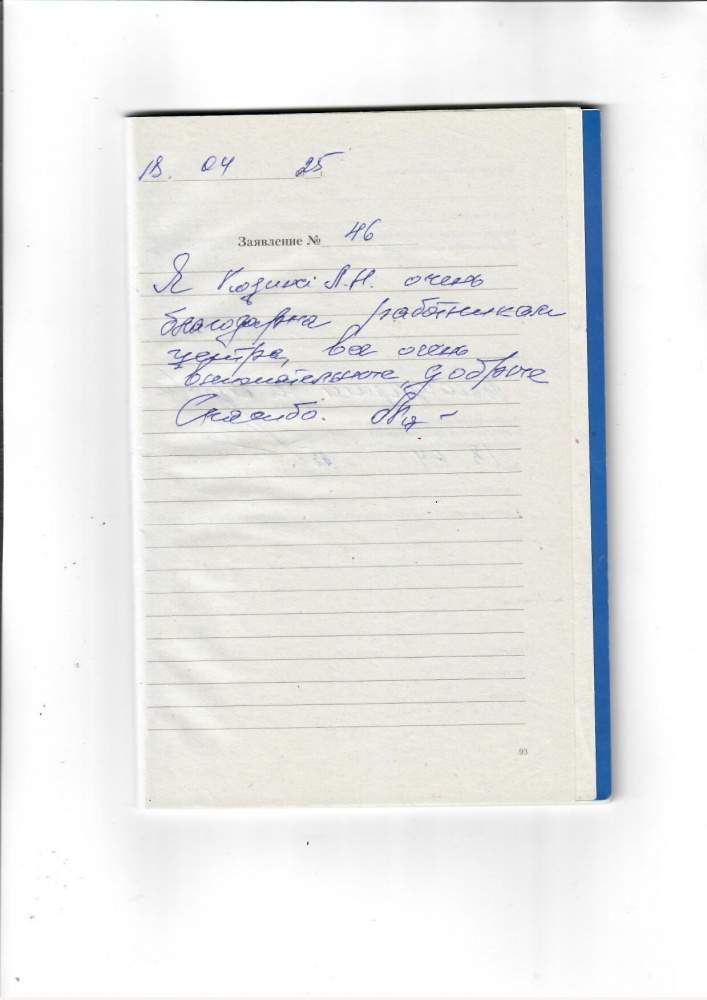 18. 04 25
Заявление № 46
Я Л.Н. очень
благодарна работникам
центра, все очень
внимательные, добрые
Спасибо.
93